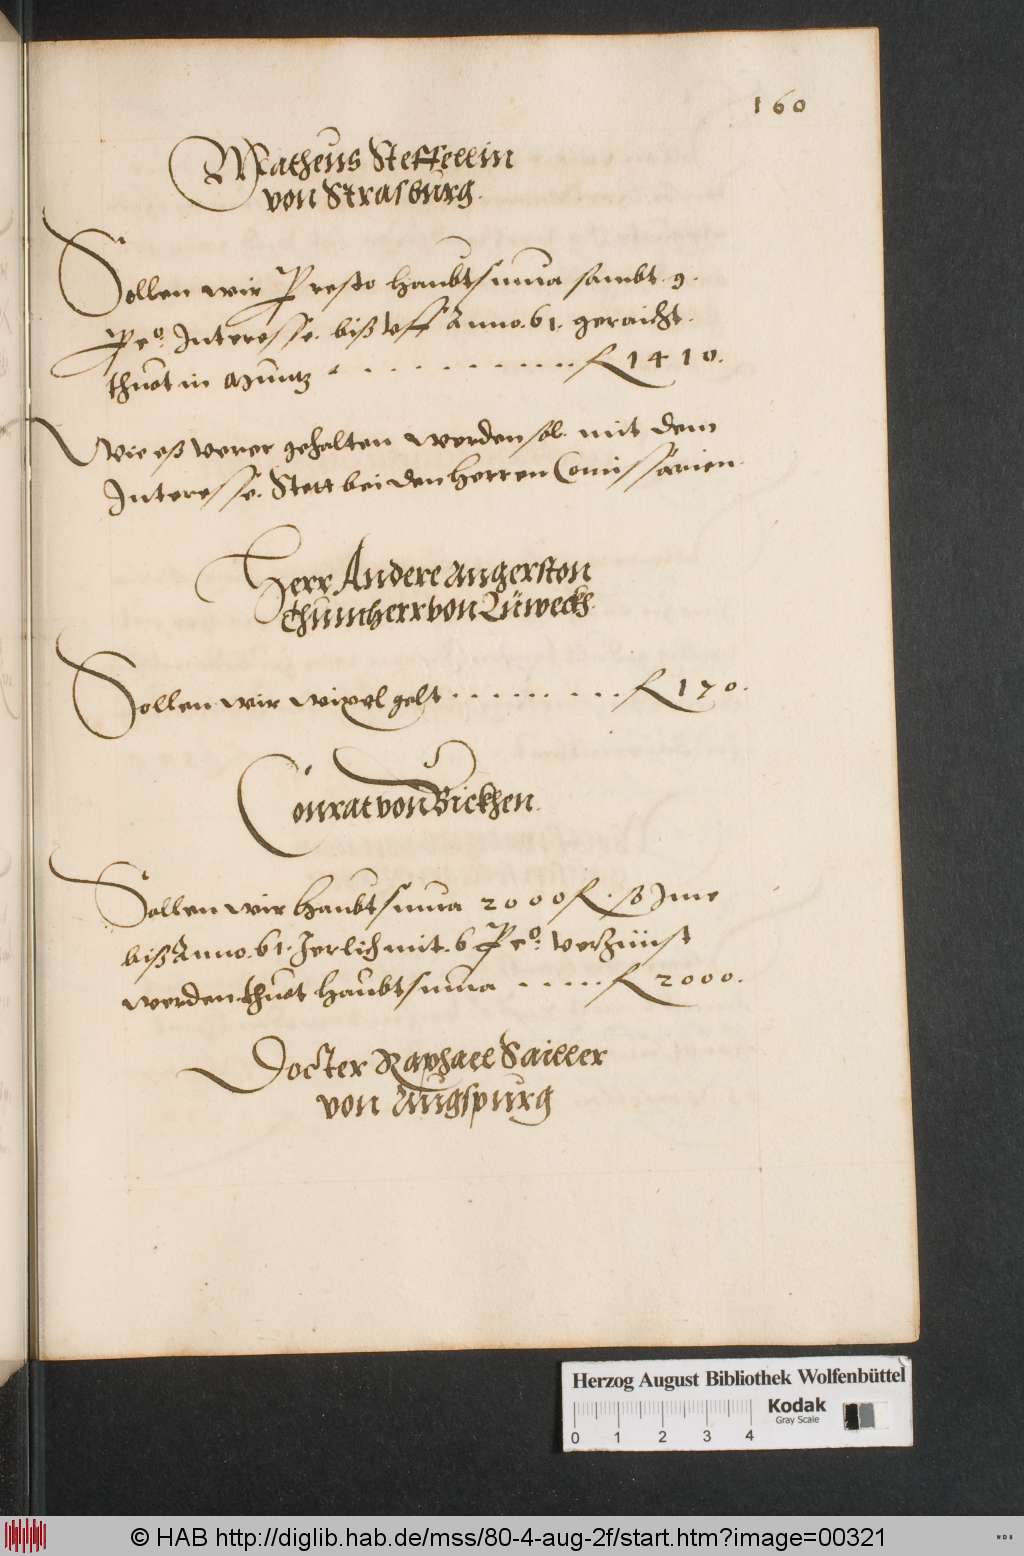 160
Matheus Steffellin
von Strasburg.
Sollen wir P resto haubtsuma sambt .9.
P co. Interesse. biß uff Anno. 61. geraicht.
thuot in Muntz . . . . . . . . . . fl 1410.
Wie eß verer gehalten werden sol. mit dem
Interesse. Stett bei den Herren Comissarien.
Herr Andere Angerston
thumherr von Lüweckh.
Sollen wir wixel gelt . . . . . . . . . fl 170.
Conrat von Bickhen.
Sollen wir Haubtsuma 2000 fl. so Ime
biß Anno. 61. Jerlich mit. 6 P co. verzünst
werden. thuot Haubtsuma . . . . . fl 2000.
Docter Raphael Sailler
von Augspurg
Herzog August Bibliothek Wolfenbüttel
Kodak
Gray Scale
0 1 2 3 4
© HAB http://diglib.hab.de/mss/80-4-aug-2f/start.htm?image=00321